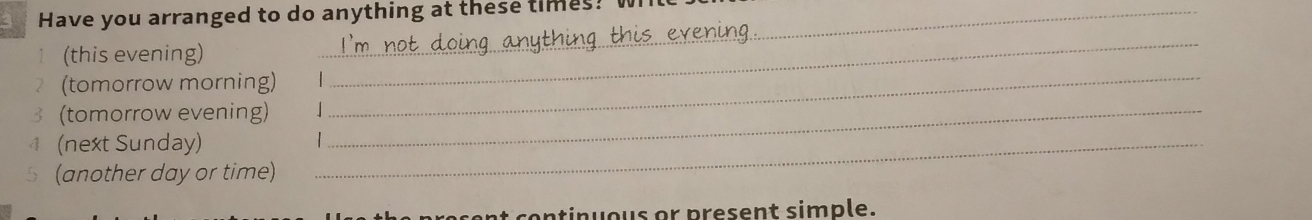 3 Have you arranged to do anything at these times? Write
1 (this evening) I'm not doing anything this evening.
2 (tomorrow morning) I
3 (tomorrow evening) I
4 (next Sunday) I
5 (another day or time)
the sentences. Use the present continuous or present simple.